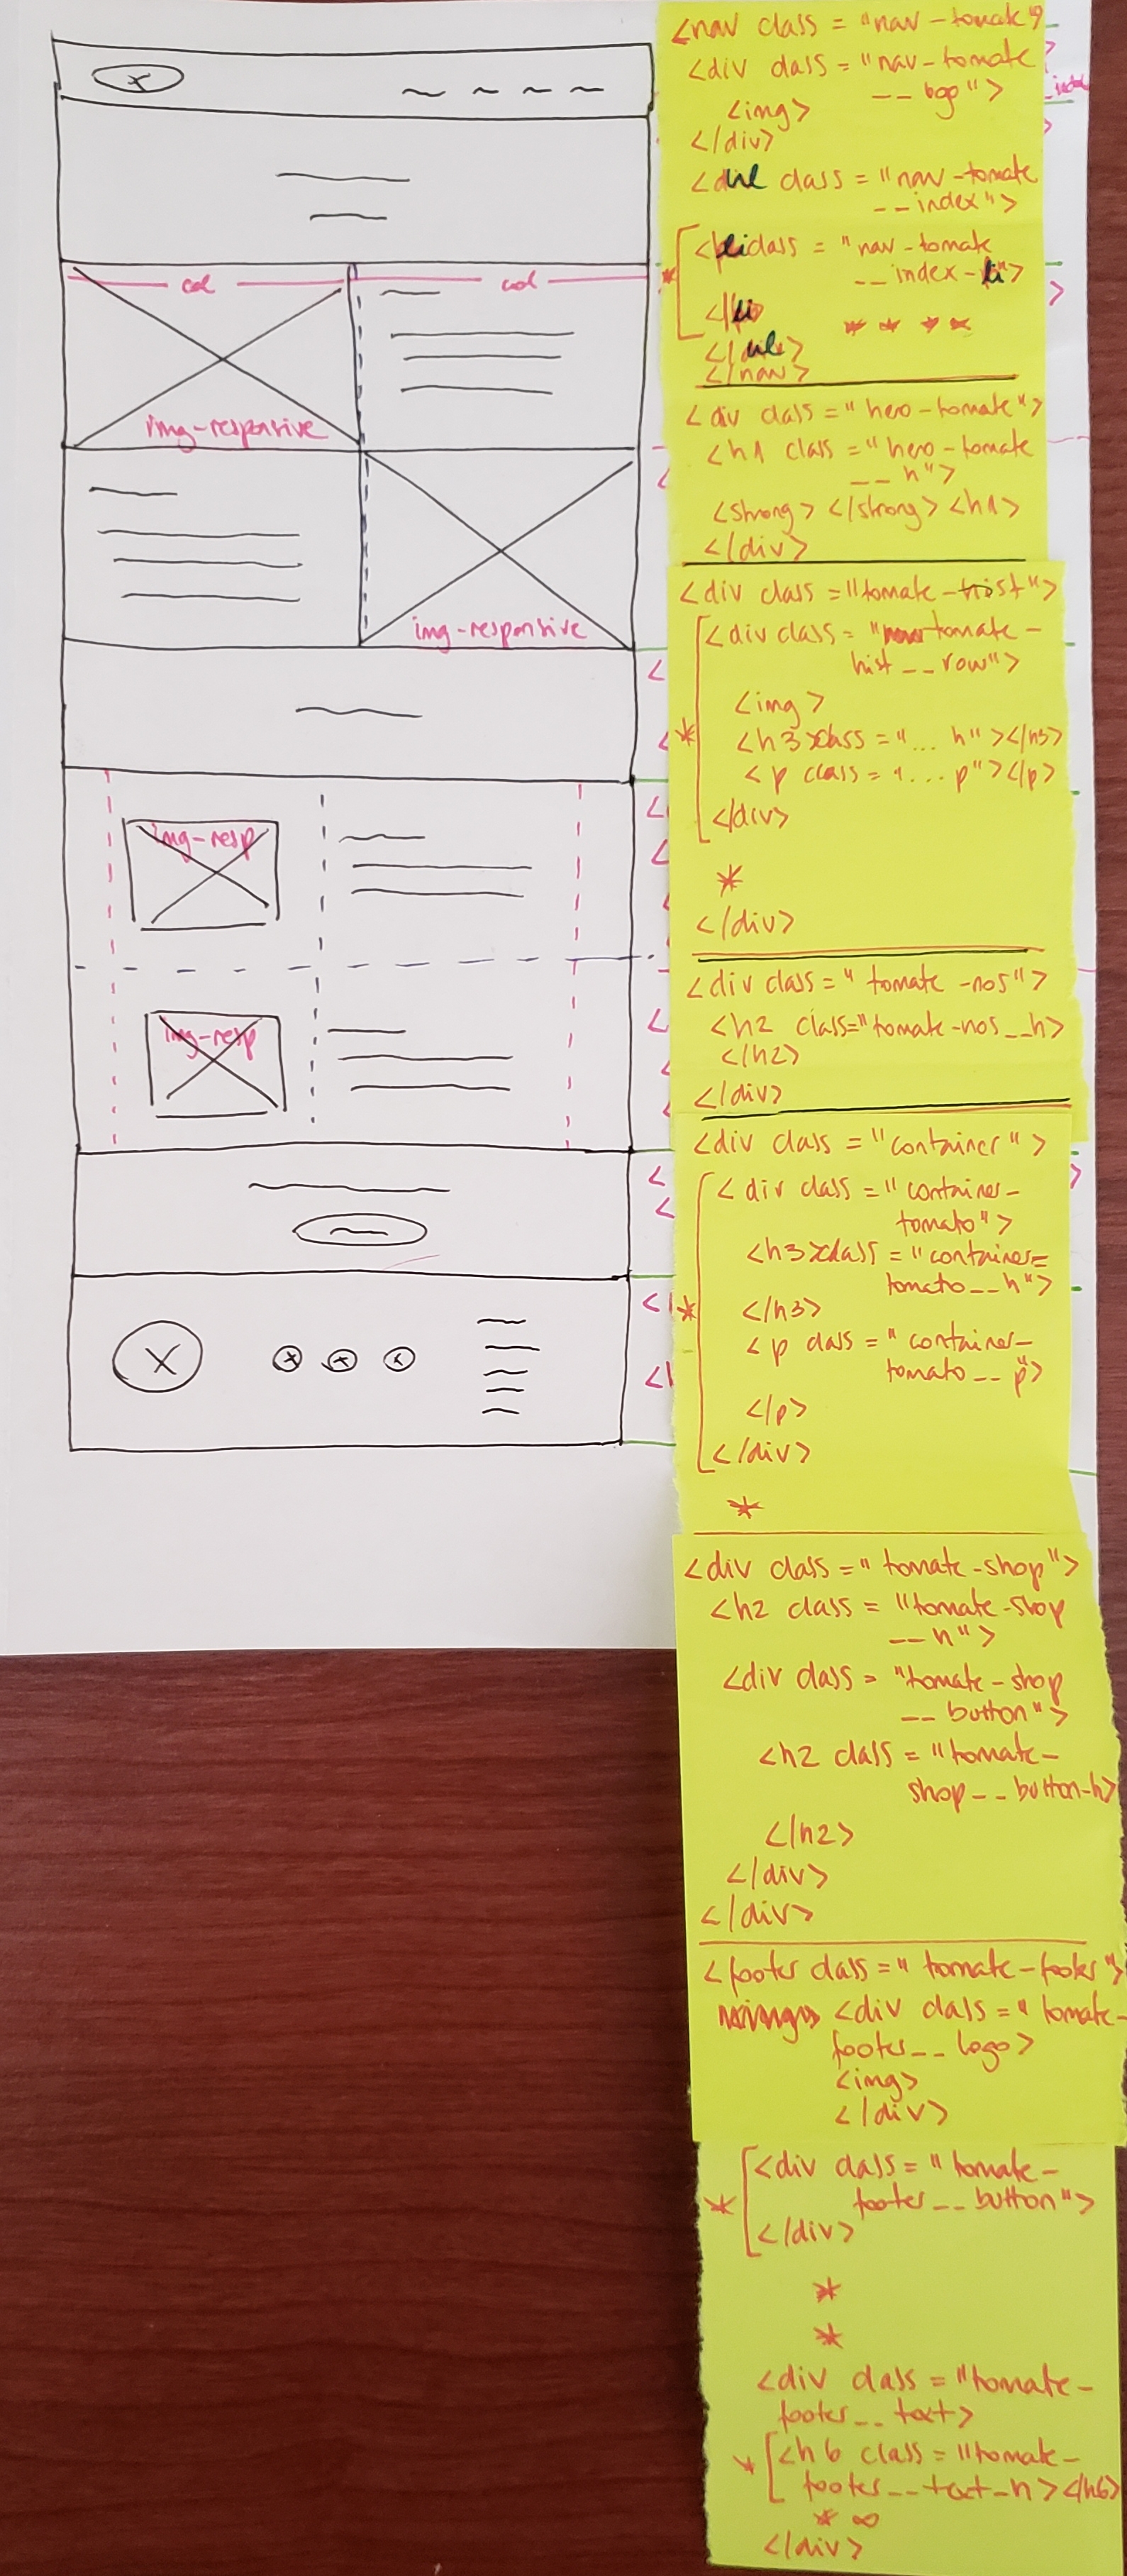 col
col
img-responsive
img-responsive
img-resp
img-resp
<nav class = "nav-tomate">
<div class = "nav-tomate
__ logo">
<img>
</div>
<ul class = "nav-tomate
__index">
* <li class = "nav-tomate
__index-li">
</li>
* * * *
</ul>
</nav>
<div class = "hero-tomate">
<h1 class = "hero-tomate
__ h">
<strong> </strong> <h1>
</div>
<div class = "tomate-hist">
<div class = "tomate-
hist __ row">
<img>
* <h3 class = "... h"></h3>
<p class = "... p"></p>
</div>
*
</div>
<div class = "tomate-nos">
<h2 class="tomate-nos__h>
</h2>
</div>
<div class = "container">
<div class = "container-
tomato">
<h3 class = "container-
tomato__h">
* </h3>
<p class = "container-
tomato__p">
</p>
</div>
*
<div class = "tomate-shop">
<h2 class = "tomate-shop
__ h">
<div class = "tomate-shop
__ button">
<h2 class = "tomate-
shop__ button-h>
</h2>
</div>
</div>
<footer class = "tomate-footer">
<div class = "tomate-
footer__ logo>
<img>
</div>
<div class = "tomate-
* footer__ button">
</div>
*
*
<div class = "tomate-
footer__ text>
* <h6 class = "tomate-
footer__text-h></h6>
* ∞
</div>